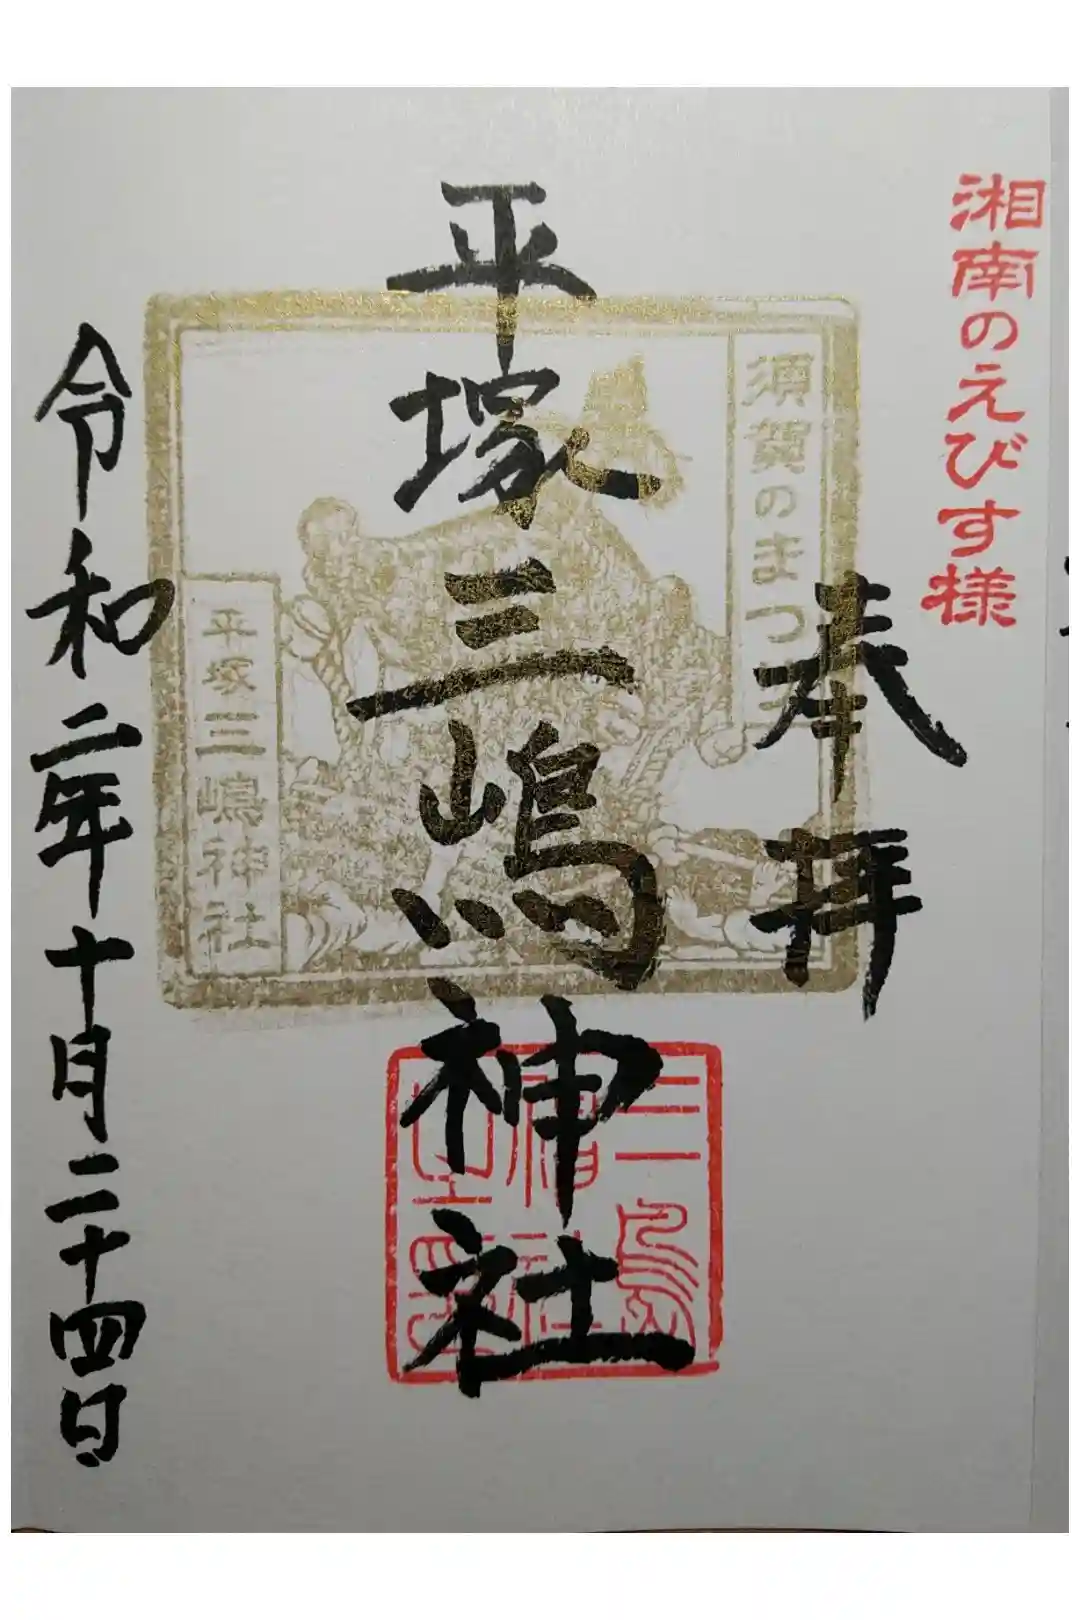 湘南のえびす様
奉拝
須賀のまつり
平塚三嶋神社
平塚三嶋神社
三島神社之印
令和二年十月二十四日